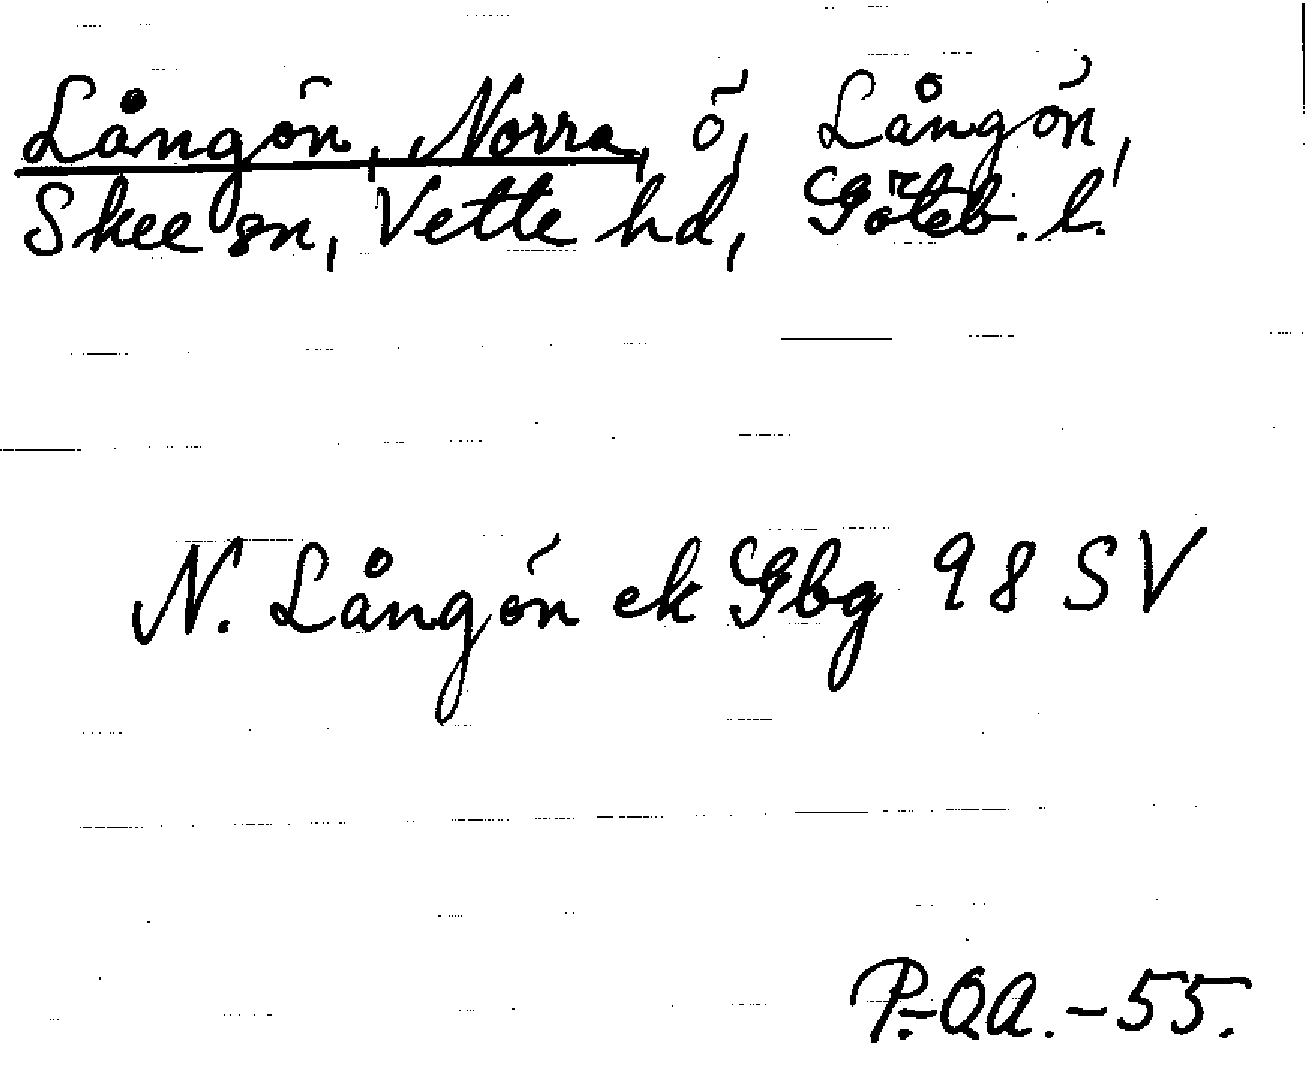 Långön, Norra, ö, Långön,
Skee sn, Vette hd, Göteb. l.
N. Långön ek Gbg 98 SV
P.-O.A. -55.